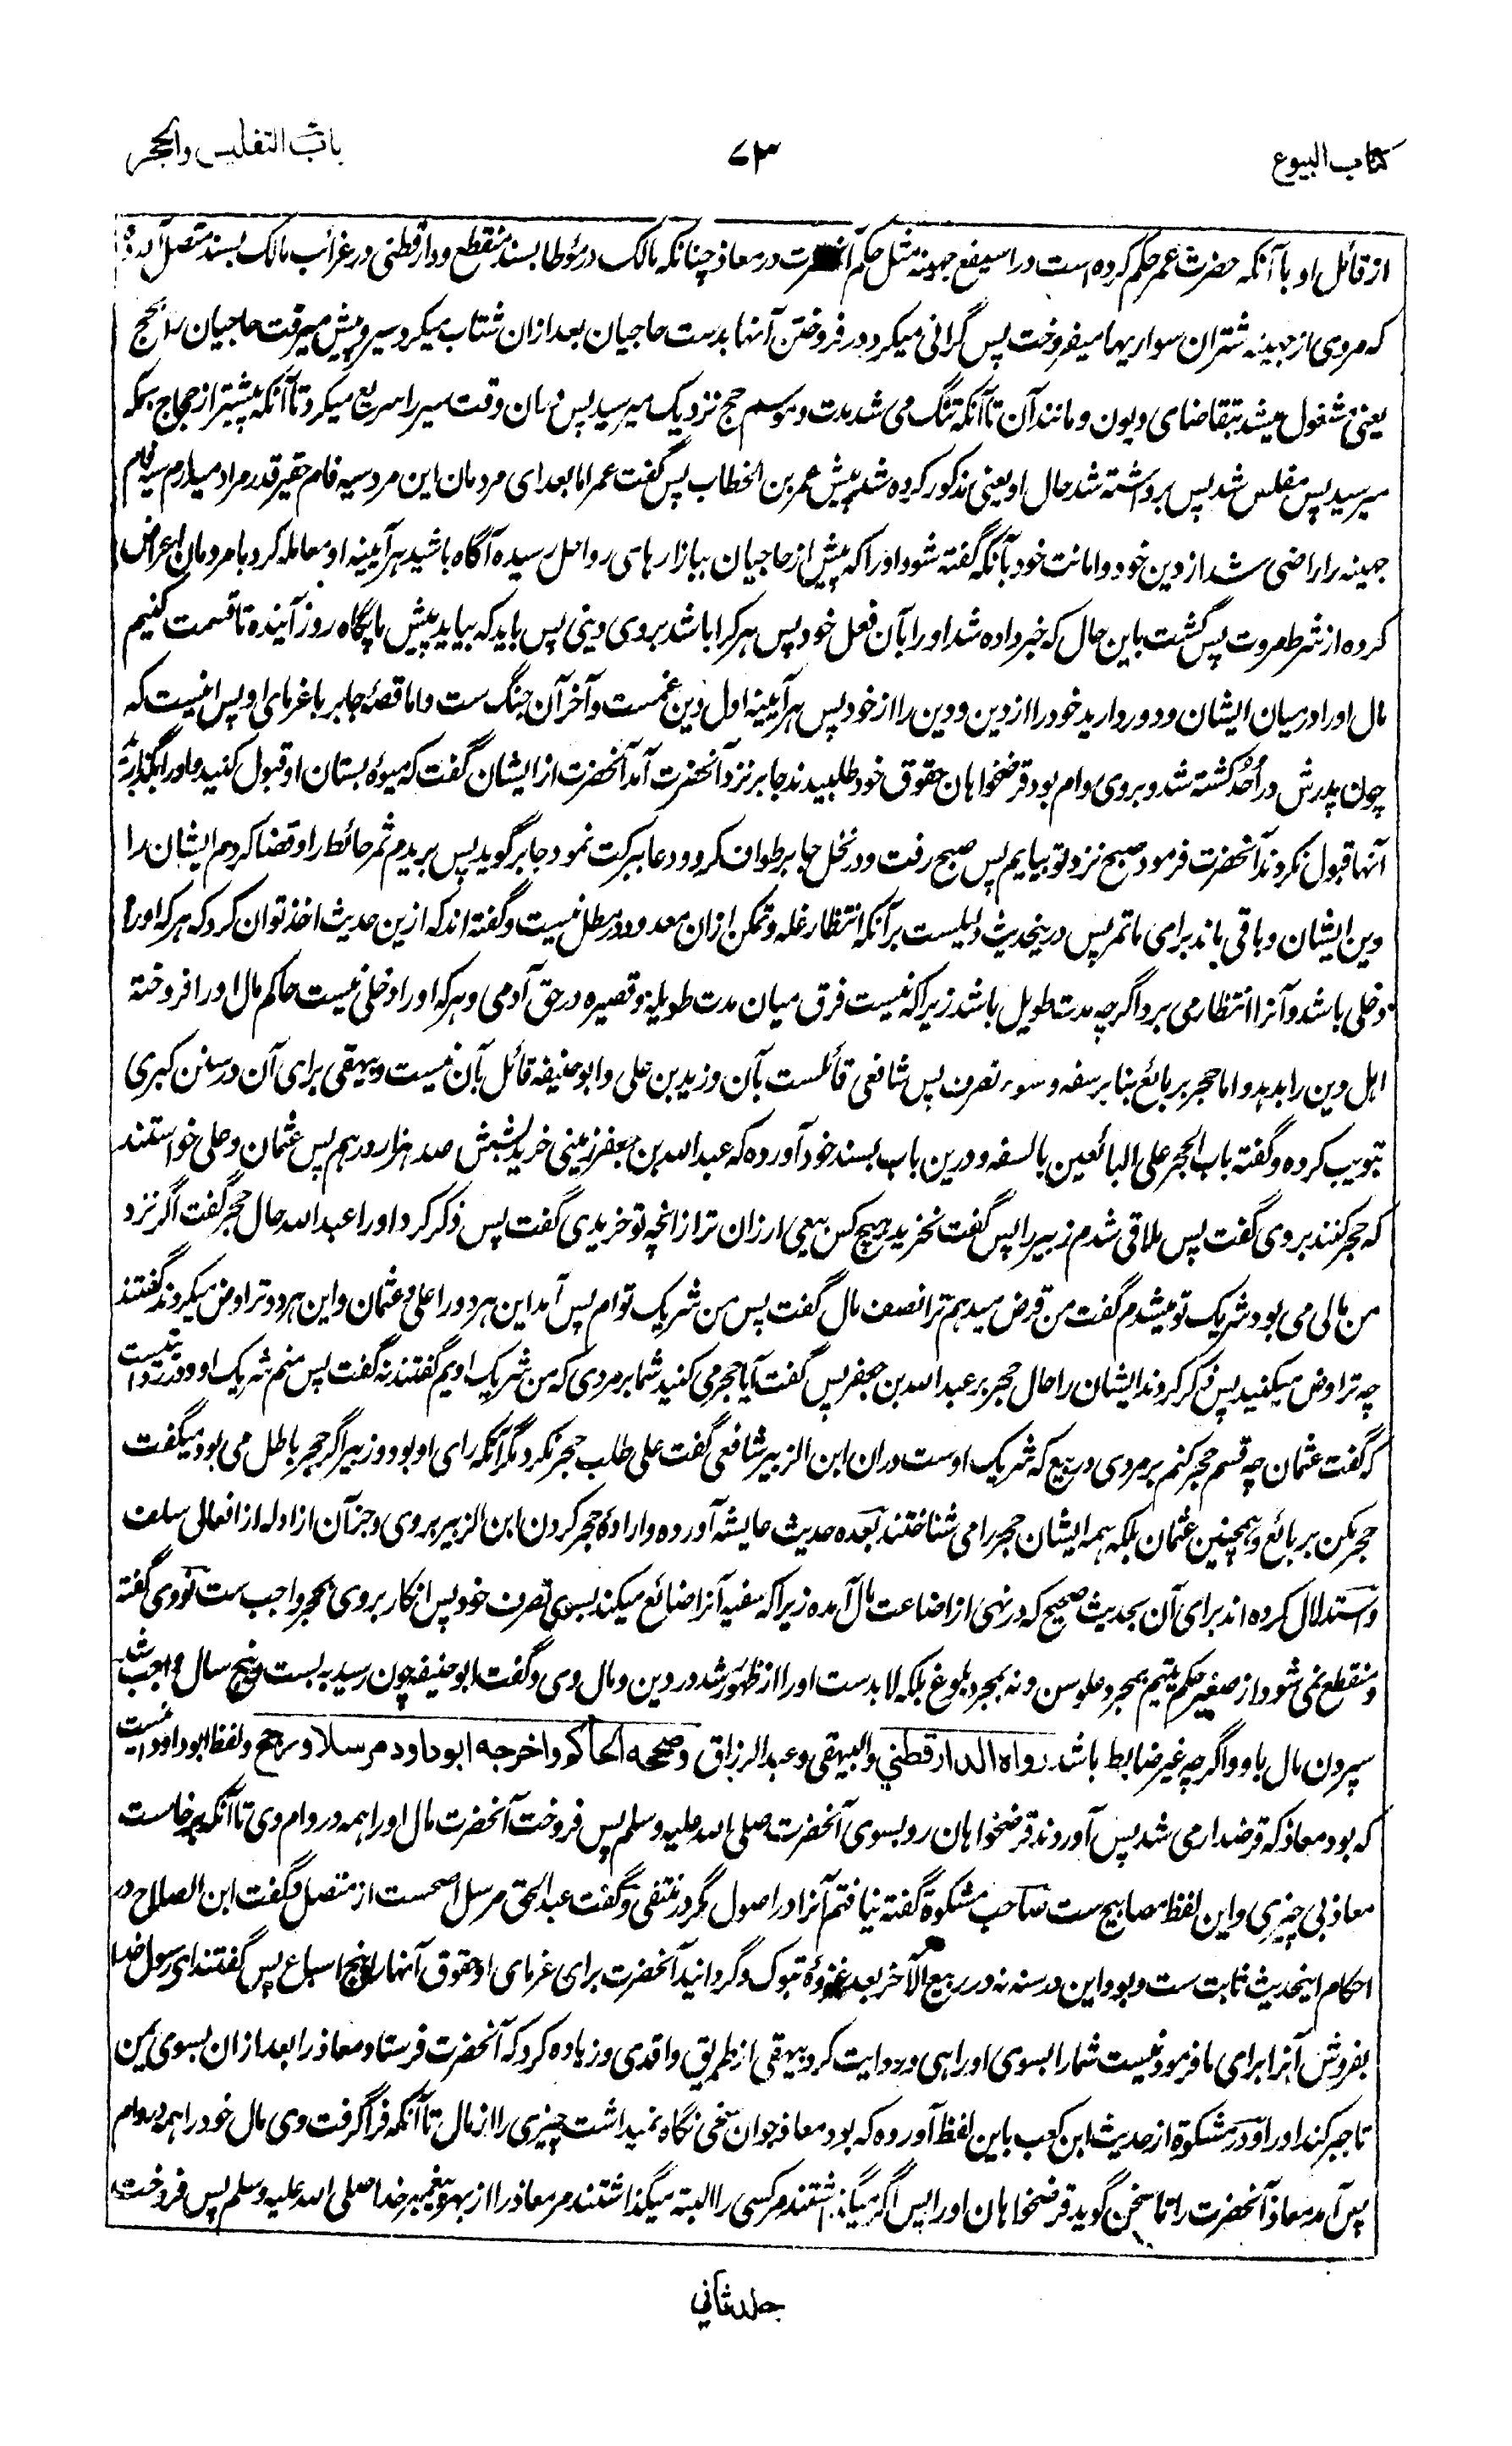 کتاب البیوع
۷۳
باب التفلیس والحجر
از قائل او با آنکه حضرت عمر حکم کرده است در اسیفع جهینه مثل حکم در معاذ چنانکه مالک در مؤطا بسند منقطع و دارقطنی در غرائب مالک بسند متصل
که مردی از جهینه شتران سواریها میفروخت پس گرانی میکرد در فروختن آنها بدست حاجیان بعد ازان شتاب میکرد سیر و پیش میرفت حاجیان را بحج
یعنی مشغول میشد بتقاضای دیون و مانند آن تا آنکه تنگ می شد مدت و موسم حج نزدیک میرسید پس دران وقت سیر را سریع میکرد تا آنکه پیشتر از حجاج بمکه
میرسید پس مفلس شد پس برداشته شد حال او یعنی مذکور کرده شد پیش عمر بن الخطاب پس گفت عمر اما بعد ای مردمان این مرد سیه فام حقیر قدر مراد میدارم سیه فام
جهینه را راضی شد از دین خود و امانت خود بآنکه گفته شود او را که پیش از حاجیان ببازارهای رواحل رسیده آگاه باشید هر آیینه او معامله کرد با مردمان اعراض
کرده از شرط مروت پس گشت باین حال که خبر داده شد او را بآن فعل خود پس هر کرا باشد بروی دینی پس باید که بیاید پیش ما پگاه روز آینده تا قسمت کنیم
مال او را در میان ایشان و دور دارید خود را از دین و دین را از خود پس هر آیینه اول دین غمست و آخر آن جنگ ست و اما قصهٔ جابر با غرمای او پس اینست که
چون پدرش در اُحُد کشته شد و بروی وام بود قرضخواهان حقوق خود طلبیدند جابر نزد آنحضرت آمد آنحضرت از ایشان گفت که میوهٔ بستان او قبول کنید و او را بگذارید
آنها قبول نکردند آنحضرت فرمود صبح نزد تو بیایم پس صبح رفت و در نخل جابر طواف کرد و دعا ببرکت نمود جابر گوید پس بریدم ثمر حائط را و قضا کردم ایشان را
دین ایشان و باقی ماند برای ما تمر پس درینحدیث دلیلست بر آنکه انتظار غله و تمکن ازان معدود در مطل نیست و گفته اند که ازین حدیث اخذ توان کرد که هر که او را
دخلی باشد و آنرا انتظار می برد اگرچه مدت طویل باشد زیرا که نیست فرق میان مدت طویله و قصیره در حق آدمی و هر که او را دخلی نیست حاکم مال او را فروخته
اهل دین را بدهد و اما حجر بر بائع بنا بر سفه و سوء تصرف پس شافعی قائلست بآن و زید بن علی و ابو حنیفه قائل بآن نیست و بیهقی برای آن در سنن کبری
تبویب کرده و گفته باب الحجر علی البائعین بالسفه و درین باب بسند خود آورده که عبد الله بن جعفر زمینی خرید بشش صد هزار درهم پس عثمان و علی خواستند
که حجر کنند بروی گفت پس ملاقی شدم زبیر را پس گفت نخرید هیچ کس بیعی ارزان تر از انچه تو خریدی گفت پس ذکر کرد او را عبد الله حال حجر گفت اگر نزد
من مالی می بود شریک تو میشدم گفت من قرض میدهم ترا نصف مال گفت پس من شریک توام پس آمد این هر دو را علی و عثمان و این هر دو تراوض میکردند گفتند
چه تراوض میکنید پس ذکر کردند ایشان را حال حجر بر عبد الله بن جعفر پس گفت آیا حجر می کنید شما بر مردی که من شریک اویم گفتند نه گفت پس منم شریک او
که گفت عثمان چه قسم حجر کنم بر مردی در بیع که شریک اوست دران ابن الزبیر شافعی گفت علی طلب حجر نکرد مگر آنکه رای او بود و زبیر اگر حجر باطل می بود میگفت
حجر مکن بر بائع و همچنین عثمان بلکه همه ایشان حجر را می شناختند بعده حدیث عایشه آورده و ارادهٔ حجر کردن ابن الزبیر بروی و جز آن از ادله از افعال سلف
و استدلال کرده اند برای آن بحدیث صحیح که در نهی از اضاعت مال آمده زیرا که سفیه آنرا ضائع میکند بسوی تصرف خود پس انکار بروی بحجر واجب ست نووی گفته
و منقطع نمی شود از صغیر حکم یتیم بمجرد علو سن و نه بمجرد بلوغ بلکه لابد ست او را از ظهور رشد در دین و مال وی و گفت ابو حنیفه چون رسید به بست و پنج سال واجب شد
سپردن مال باو و اگرچه غیر ضابط باشد رواه الدارقطني والبیهقی و عبد الرزاق وصححه الحاکم واخرجه ابو داود مرسلا ورجح و لفظ ابو داود اینست
که بود معاذ که قرضدار می شد پس آوردند قرضخواهان رو بسوی آنحضرت صلی الله علیه وسلم پس فروخت آنحضرت مال او را همه در وام وی تا آنکه برخاست
معاذ بی چیزی و این لفظ مصابیح ست صاحب مشکوة گفته نیافتم آنرا در اصول مگر در منتقی و گفت عبد الحق مرسل اصحست از متصل و گفت ابن الصلاح در
احکام اینحدیث ثابت ست و بود این در سنه نه در ربیع الآخر بعد غزوهٔ تبوک و گردانید آنحضرت برای غرمای او حقوق آنها را پنج اسباع پس گفتند ای رسول خدا
بفروش آنرا برای ما فرمود نیست شما را بسوی او راهی و روایت کرد بیهقی از طریق واقدی و زیاده کرد که آنحضرت فرستاد معاذ را بعد ازان بسوی یمن
تا جبر کند او را و در مشکوة از حدیث ابن کعب باین لفظ آورده که بود معاذ جوان سخی نگاه نمیداشت چیزی را از مال تا آنکه فرا گرفت وی مال خود را همه در وام
پس آمد معاذ آنحضرت را تا سخن گوید قرضخواهان او را پس اگر میگذاشتند مر کسی را البته میگذاشتند مر معاذ را از بهر پیغمبر خدا صلی الله علیه وسلم پس فروخت
جلد ثانی